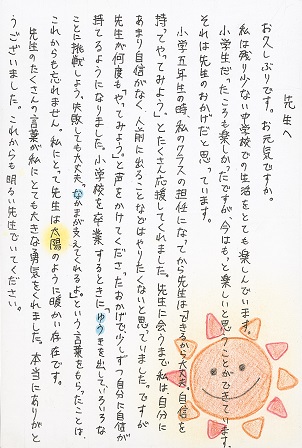 先生へ
お久しぶりです。お元気ですか。
私は残り少ない中学校での生活をとても楽しんでいます。
小学生だったころも楽しかったですが、今はもっと楽しいと思うことができています。
それは先生のおかげだと思っています。
小学五年生の時、私のクラスの担任になってから先生は、「できるから大丈夫、自信を
持ってやってみよう。」とたくさん応援してくれました。先生に会うまで私は、自分に
あまり自信がなく、人前に出ることなどはやりたくないと思っていました。ですが
先生が何度も「やってみよう。」と声をかけてくださったおかげで、少しずつ自分に自信が
持てるようになりました。小学校を卒業するときに、「ゆうきを出していろいろな
ことに挑戦しよう。失敗しても大丈夫、なかまが支えてくれるよ。」という言葉をもらったことは、
これからも忘れません。私にとって先生は太陽のように暖かい存在です。
先生のたくさんの言葉が私にとても大きな勇気をくれました。本当にありがと
うございました。これからも明るい先生でいてください。